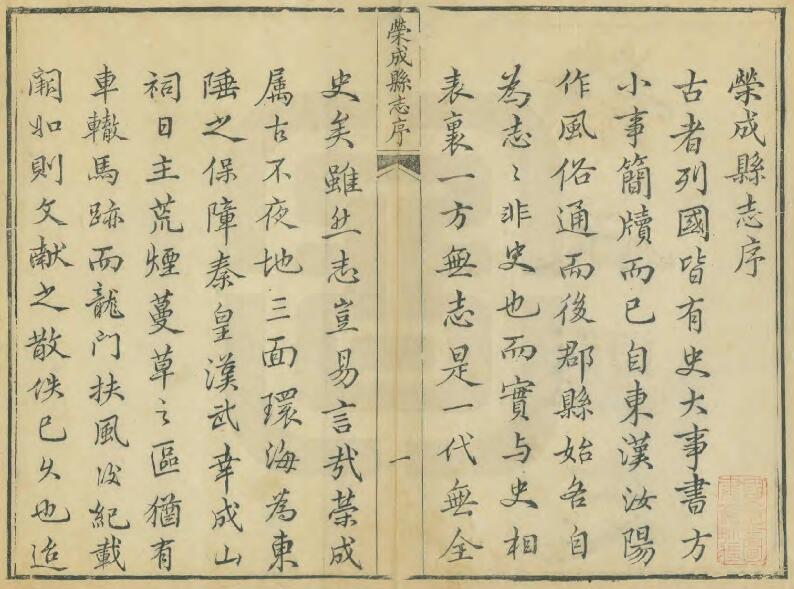 榮成縣志序
古者列國皆有史大事書方
小事簡牘而已自東漢汝陽
作風俗通而後郡縣始各自
為志〻非史也而實与史相
表裏一方無志是一代無全
榮成縣志序
一
史矣雖然志豈易言哉榮成
属古不夜地三面環海為東
陲之保障秦皇漢武幸成山
祠日主荒煙蔓草之區猶有
車轍馬跡而龍门扶風汳紀載
闕如則文献之散佚已久也迨